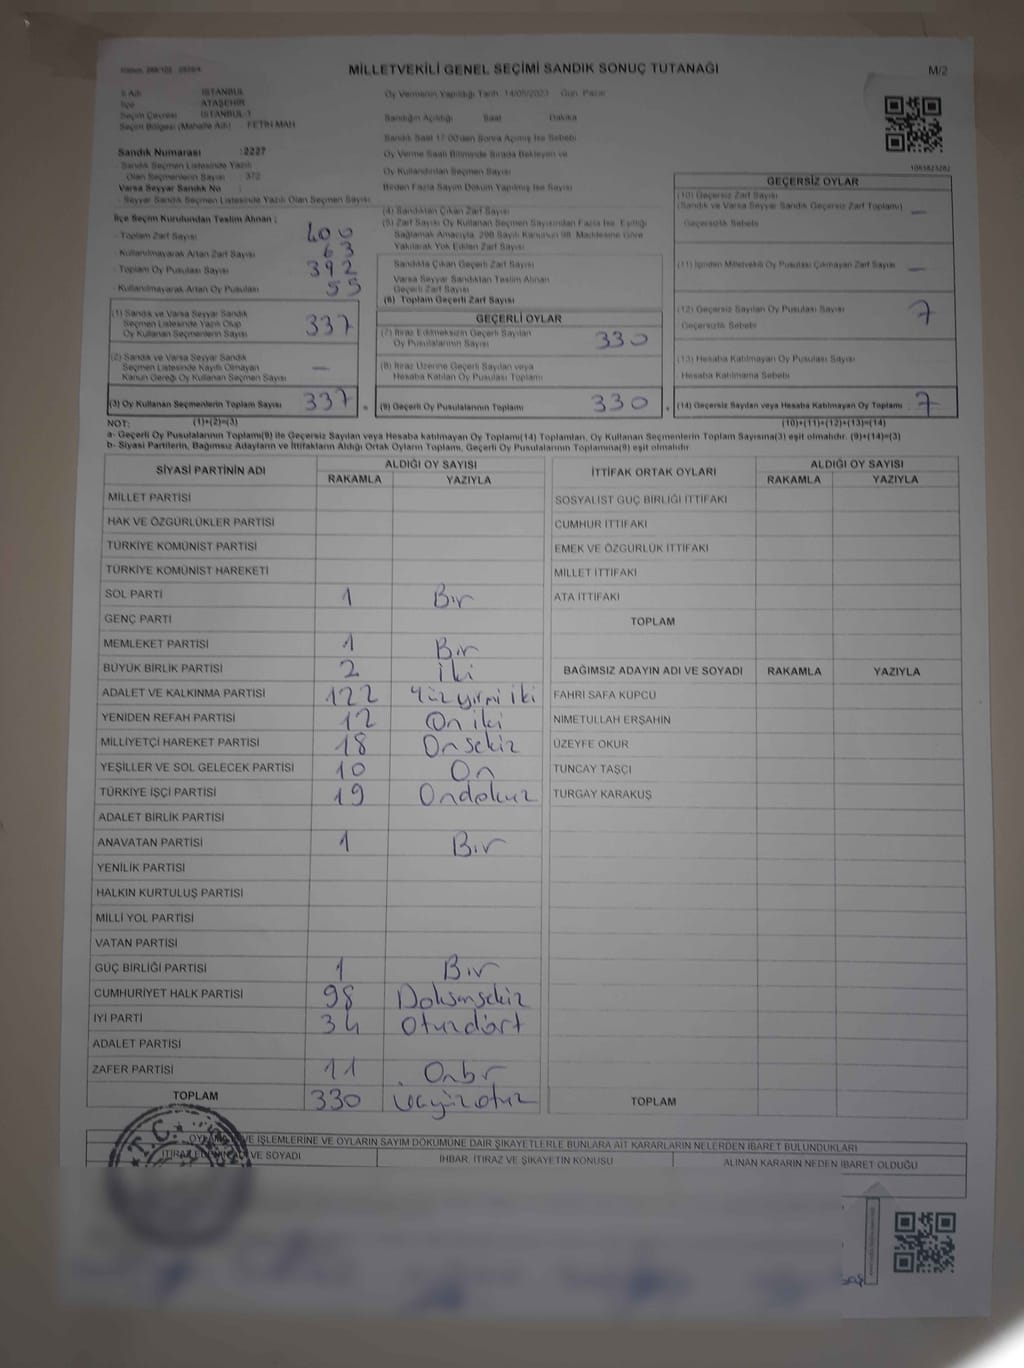 MİLLETVEKİLİ GENEL SEÇİMİ SANDIK SONUÇ TUTANAĞI
M/2
İli Adı İSTANBUL
İlçe ATAŞEHİR
Seçim Çevresi İSTANBUL-1
Seçim Bölgesi (Mahalle Adı) FETİH MAH
Sandık Numarası :2227
Sandık Seçmen Listesinde Yazılı
Olan Seçmenlerin Sayısı 372
Varsa Seyyar Sandık No :
Seyyar Sandık Seçmen Listesinde Yazılı Olan Seçmen Sayısı
İlçe Seçim Kurulundan Teslim Alınan ;
Toplam Zarf Sayısı 400
Kullanılmayarak Artan Zarf Sayısı 63
Toplam Oy Pusulası Sayısı 392
Kullanılmayarak Artan Oy Pusulası 55
(1) Sandık ve Varsa Seyyar Sandık
Seçmen Listesinde Yazılı Olup
Oy Kullanan Seçmenlerin Sayısı 337
(2) Sandık ve Varsa Seyyar Sandık
Seçmen Listesinde Kayıtlı Olmayan
Kanun Gereği Oy Kullanan Seçmen Sayısı —
(3) Oy Kullanan Seçmenlerin Toplam Sayısı 337
Oy Vermenin Yapıldığı Tarih 14/05/2023 Gün Pazar
Sandığın Açıldığı Saat Dakika
Sandık Saat 17:00'den Sonra Açılmış İse Sebebi
Oy Verme Saati Bitiminde Sırada Bekleyen ve
Oy Kullandırılan Seçmen Sayısı
Birden Fazla Sayım Döküm Yapılmış İse Sayısı
(4) Sandıktan Çıkan Zarf Sayısı
(5) Zarf Sayısı Oy Kullanan Seçmen Sayısından Fazla İse, Eşitliği
Sağlamak Amacıyla, 298 Sayılı Kanunun 98. Maddesine Göre
Yakılarak Yok Edilen Zarf Sayısı
Sandıkta Çıkan Geçerli Zarf Sayısı
Varsa Seyyar Sandıktan Teslim Alınan
Geçerli Zarf Sayısı
(6) Toplam Geçerli Zarf Sayısı
GEÇERLİ OYLAR
(7) İtiraz Edilmeksizin Geçerli Sayılan
Oy Pusulalarının Sayısı 330
(8) İtiraz Üzerine Geçerli Sayılan veya
Hesaba Katılan Oy Pusulası Toplamı
(9) Geçerli Oy Pusulalarının Toplamı 330
1083823282
GEÇERSİZ OYLAR
(10) Geçersiz Zarf Sayısı
(Sandık ve Varsa Seyyar Sandık Geçersiz Zarf Toplamı) —
Geçersizlik Sebebi
(11) İçinden Milletvekili Oy Pusulası Çıkmayan Zarf Sayısı —
(12) Geçersiz Sayılan Oy Pusulası Sayısı 7
Geçersizlik Sebebi
(13) Hesaba Katılmayan Oy Pusulası Sayısı
Hesaba Katılmama Sebebi
(14) Geçersiz Sayılan veya Hesaba Katılmayan Oy Toplamı 7
NOT: (1)+(2)=(3) (10)+(11)+(12)+(13)=(14)
a- Geçerli Oy Pusulalarının Toplamı(9) ile Geçersiz Sayılan veya Hesaba katılmayan Oy Toplamı(14) Toplamları, Oy Kullanan Seçmenlerin Toplam Sayısına(3) eşit olmalıdır. (9)+(14)=(3)
b- Siyasi Partilerin, Bağımsız Adayların ve İttifakların Aldığı Ortak Oyların Toplamı, Geçerli Oy Pusulalarının Toplamına(9) eşit olmalıdır.
SİYASİ PARTİNİN ADI ALDIĞI OY SAYISI
RAKAMLA YAZIYLA
MİLLET PARTİSİ
HAK VE ÖZGÜRLÜKLER PARTİSİ
TÜRKİYE KOMÜNİST PARTİSİ
TÜRKİYE KOMÜNİST HAREKETİ
SOL PARTİ 1 Bir
GENÇ PARTİ
MEMLEKET PARTİSİ 1 Bir
BÜYÜK BİRLİK PARTİSİ 2 İki
ADALET VE KALKINMA PARTİSİ 122 Yüz yirmi iki
YENİDEN REFAH PARTİSİ 12 On iki
MİLLİYETÇİ HAREKET PARTİSİ 18 On sekiz
YEŞİLLER VE SOL GELECEK PARTİSİ 10 On
TÜRKİYE İŞÇİ PARTİSİ 19 Ondokuz
ADALET BİRLİK PARTİSİ
ANAVATAN PARTİSİ 1 Bir
YENİLİK PARTİSİ
HALKIN KURTULUŞ PARTİSİ
MİLLİ YOL PARTİSİ
VATAN PARTİSİ
GÜÇ BİRLİĞİ PARTİSİ 1 Bir
CUMHURİYET HALK PARTİSİ 98 Doksansekiz
İYİ PARTİ 34 Otuzdört
ADALET PARTİSİ
ZAFER PARTİSİ 11 Onbir
TOPLAM 330 Üçyüzotuz
İTTİFAK ORTAK OYLARI ALDIĞI OY SAYISI
RAKAMLA YAZIYLA
SOSYALİST GÜÇ BİRLİĞİ İTTİFAKI
CUMHUR İTTİFAKI
EMEK VE ÖZGÜRLÜK İTTİFAKI
MİLLET İTTİFAKI
ATA İTTİFAKI
TOPLAM
BAĞIMSIZ ADAYIN ADI VE SOYADI RAKAMLA YAZIYLA
FAHRİ SAFA KÜPCÜ
NİMETULLAH ERŞAHİN
ÜZEYFE OKUR
TUNCAY TAŞÇI
TURGAY KARAKUŞ
TOPLAM
VE İŞLEMLERİNE VE OYLARIN SAYIM DÖKÜMÜNE DAİR ŞİKAYETLERLE BUNLARA AİT KARARLARIN NELERDEN İBARET BULUNDUKLARI
VE SOYADI İHBAR, İTİRAZ VE ŞİKAYETİN KONUSU ALINAN KARARIN NEDEN İBARET OLDUĞU
T.C.